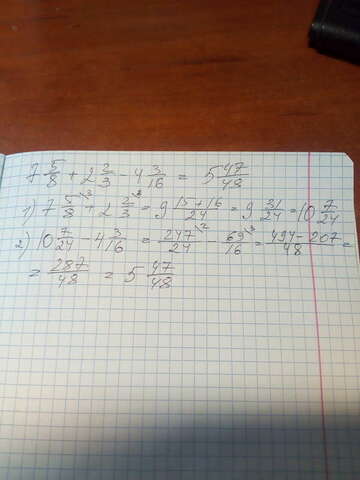 7 5/8 + 2 2/3 - 4 3/16 = 5 47/48
1) 7 5/8 \3 + 2 2/3 \8 = 9 15+16/24 = 9 31/24 = 10 7/24
2) 10 7/24 - 4 3/16 = 247/24 \2 - 69/16 \3 = 494-207/48 =
= 287/48 = 5 47/48